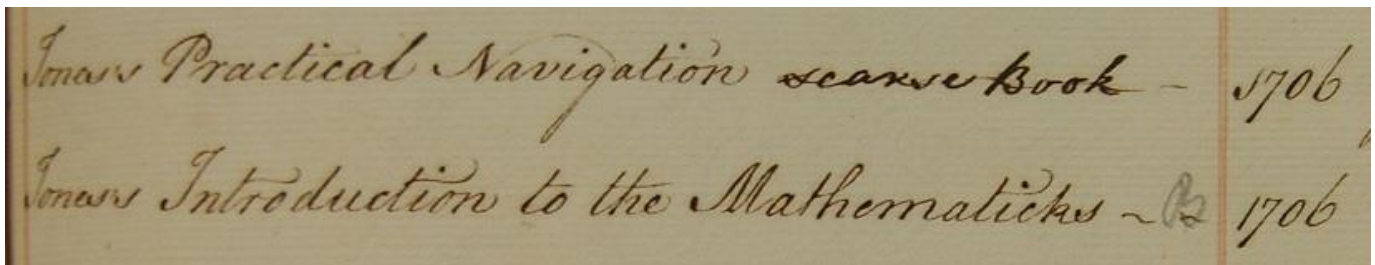 Jones's Practical Navigation scarse Book - 1706
Jones's Introduction to the Mathematicks ~ B 1706